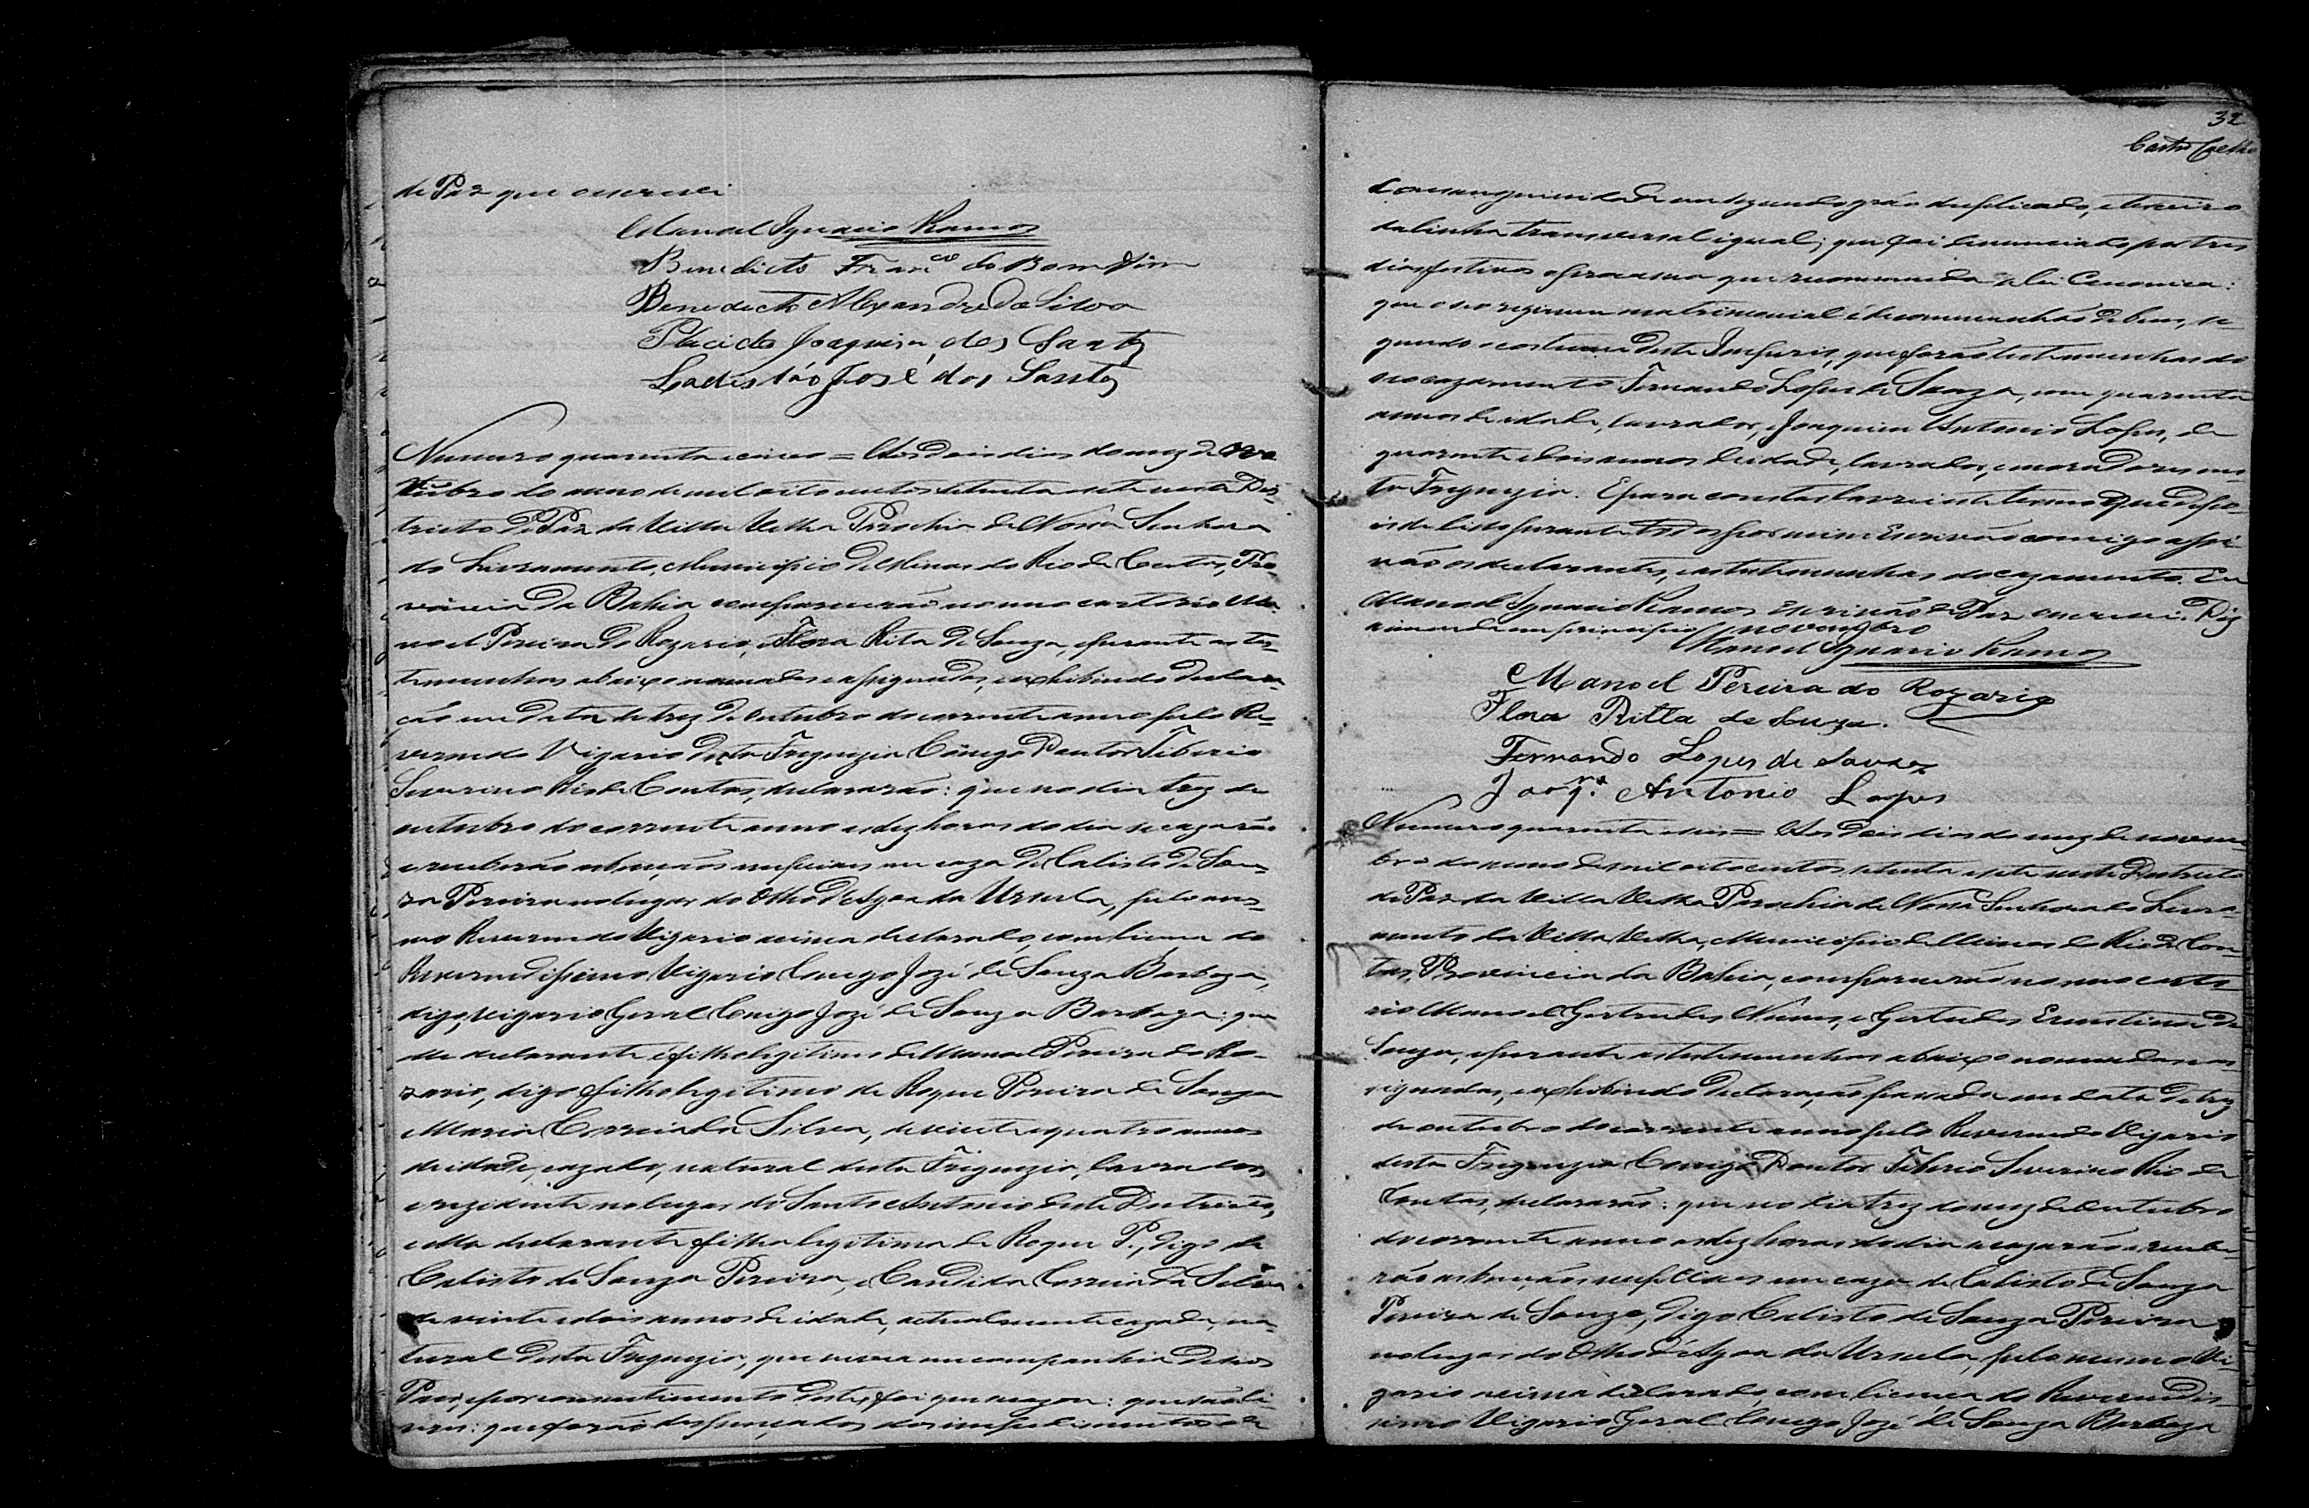 de Paz que o escrevi
Manoel Ignacio Ramos
Benedicto Fran.co do Bom Fim
Benedicto Alexandre da Silva
Placido Joaquim dos Santos
Ladislão José dos Santos
Numero quarenta e cinco = Aos dois dias do mez de Ou
tubro do anno de mil oito centos setenta e sete nesta Dis-
tricto de Paz da Villa Velha Parochia de Nossa Senhora
do Livramento, Municipio de Minas do Rio de Contas, Pro-
vincia da Bahia comparecerão no meo cartorio Ma-
noel Pereira do Rozario, e Flora Rita de Souza, e perante as tes-
temunhas abaixo nomeadas e assignadas, exhibindo declara-
ção em data de trez de Outubro do corrente anno pelo Re-
verendo Vigario desta Freguezia Cônego Doutor Tiberio
Severino Rio de Contas, declararão: que no dia trez de
outubro do corrente anno as dez horas do dia se cazarão
e receberão as bençãos nupciaes em caza de Calisto de Sou-
za Pereira no lugar do Olho d'Agoa da Ursula, pelo mes-
mo Reverendo Vigario acima declarado, com licença do
Reverendissimo Vigario Conego Jozé de Souza Barboza,
digo, Vigario Geral Conego Jozé de Souza Barboza: que
elle declarante é filho legitimo de Manoel Pereira do Ro-
zario, digo filho legitimo de Roque Pereira de Souza
e Maria Correia da Silva, de vinte e quatro annos
de idade, cazado, natural desta Freguezia, lavrador,
e rezidente no lugar do Santo Antonio deste Districto,
e ella declarante filha legitima de Roque P., digo de
Calisto de Souza Pereira, e Candida Correia da Silva
de vinte e dois annos de idade, actualmente cazada, na-
tural desta Freguezia, que vivia em companhia de seos
Pais, e por consentimento destes foi que cazou: que são li-
vres: que forão dispençados dos impedimentos de
32
Castro Coelho
consanguinidade em segundo gráo duplicado, e terceiro
da linha transversal igual; que foi denunciado por tres
dias festivos o proclama que recommenda a lei Canonica:
que o seo regimen matrimonial é de communhão de bens, se-
gundo o costume deste Imperio, que forão testemunhas do
seo cazamento Fernando Lopes de Souza, com quarenta
annos de idade, lavrador, e Joaquim Antonio Lopes, de
quarenta e dois annos de idade, lavrador, e moradores nes-
ta Freguezia. E para constar lavrei este termo que depo-
is de lido perante todos por mim Escrivão comigo assi-
narão os declarantes, e as testemunhas do cazamento. Eu
Manoel Ignacio Ramos Escrivão de Paz o escrevi. Digo
a emenda em principio novembro
Manoel Ignacio Ramos
Manoel Pereira do Rozario
Flora Ritta de Souza.
Fernando Lopes de Souza
Joaq.m Antonio Lopes
Numero quarenta e seis = Aos dois dias do mez de novem
bro do anno de mil oitocentos setenta e sete neste Districto
de Paz da Villa Velha Parochia de Nossa Senhora do Livra-
mento da Villa Velha, Municipio de Minas do Rio de Con-
tas, Provincia da Bahia, comparecerão no meo carto-
rio Manoel Gertrudes Nunes, e Gertrudes Ernestina de
Souza, e perante as testemunhas abaixo nomeadas e as-
signadas, exhibindo declaração passada em data de trez
de outubro do corrente anno pelo Reverendo Vigario
desta Freguezia Conego Doutor Tiberio Severino Rio de
Contas, declararão: que no dia trez do mez de Outubro
do corrente anno as dez horas do dia se cazarão e recebe-
rão as bençãos nupciaes em caza de Calisto de Souza
Pereira de Souza, digo Calisto de Souza Pereira
no lugar do Olho d'Agoa da Ursula, pelo mesmo Vi-
gario acima declarado, com licença do Reverendis-
simo Vigario Geral Conego Jozé de Souza Barboza